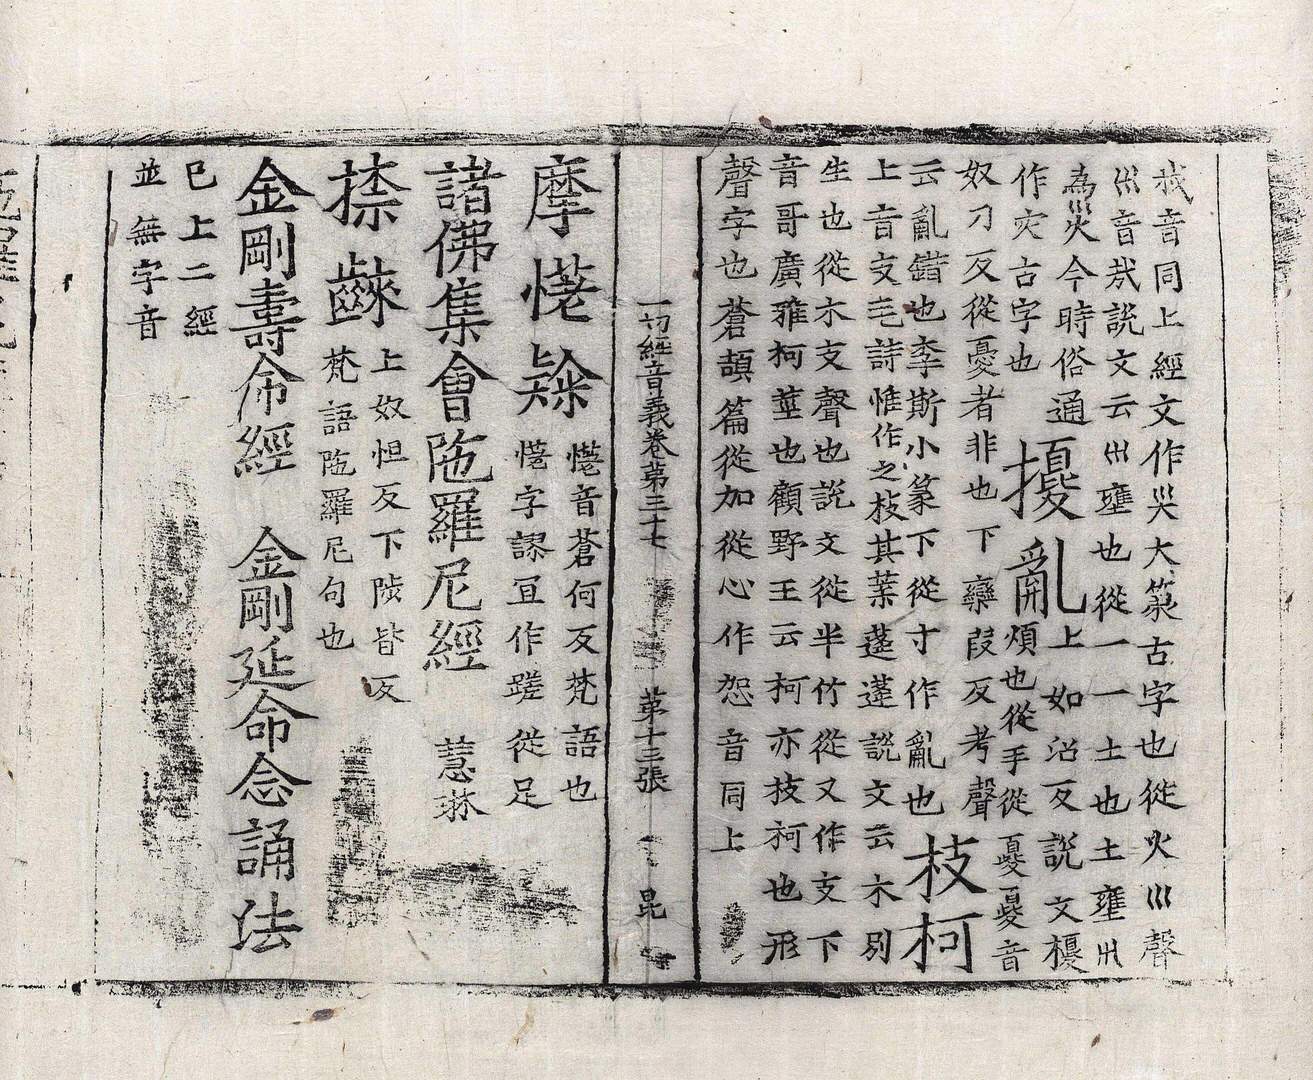 烖音同上經文作災大篆古字也從火巛聲
巛音哉說文云巛壅也從一一土也土壅巛
為災今時俗通
作灾古字也
擾亂
上如沼反說文擾
煩也從手從
憂憂音
奴刀反從憂者非也下欒段反考聲
云亂錯也李斯小篆下從寸作亂也
枝柯
上音支毛詩惟作之枝其葉蓬蓬說文云木別
生也從木支聲也說文從半竹從又作支下
音哥廣雅柯莖也顧野王云柯亦枝柯也形
聲字也蒼頡篇從加從心作恕音同上
一切經音義卷第三十七 第十三張 昆
摩𢠸𨈇
𢠸音蒼何反梵語也
𢠸字謬宜作蹉從足
諸佛集會陁羅尼經 慧琳
㮏齼
上奴怛反下陟皆反
梵語陁羅尼句也
金剛壽命經 金剛延命念誦法
已上二經
並無字音